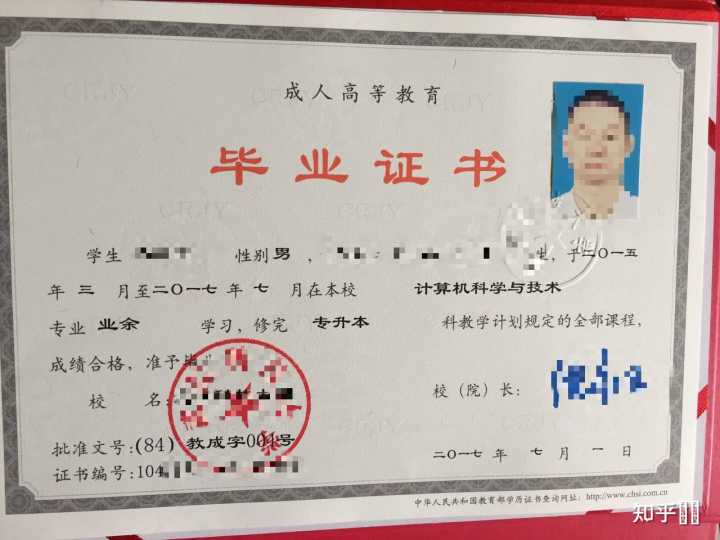 成人高等教育
毕业证书
学生 性别 男 , 生,于二〇一五
年 三 月至二〇一七 年 七 月在本校 计算机科学与技术
专业 业余 学习,修完 专升本 科教学计划规定的全部课程,
成绩合格,准予毕
校 名:
校(院)长:
批准文号:(84)教成字00 号
二〇一七 年 七 月 一 日
证书编号:104
中华人民共和国教育部学历证书查询网址:http://www.chsi.com.cn
知乎